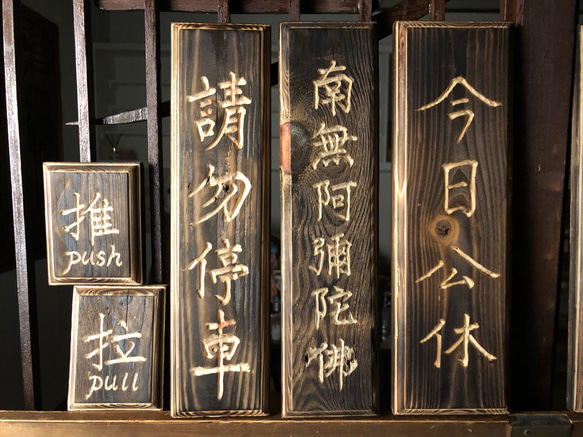 推
push
拉
pull
請勿停車
南無阿彌陀佛
今日公休